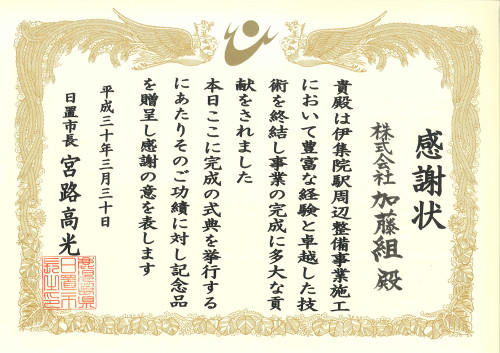 感謝状
株式会社 加藤組 殿
貴殿は伊集院駅周辺整備事業施工
において豊富な経験と卓越した技
術を終結し事業の完成に多大な貢
献をされました
本日ここに完成の式典を挙行する
にあたりそのご功績に対し記念品
を贈呈し感謝の意を表します
平成三十年三月三十日
日置市長 宮路高光
鹿児島県
日置市
長之印